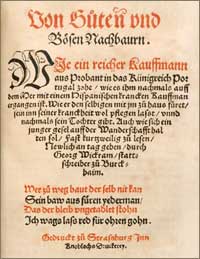 Von Gůten vnd
Bösen Nachbaurn.
WJe ein reicher Kauffmann
aus Probant in das Künigreich Por
tugal zohe / wie es ihm nachmals auff
dem Mer mit einem Hispanischen krancken Kauffman
ergangen ist. Wie er den selbigen mit jm zů haus fůret/
jem inn seiner kranckheit wol pflegen lasst / vnnd
nachmals sein Tochter gibt. Auch wie sich ein
junger gesel auff der Wanderschafft hal
ten sol / Fast kurtzweilig zů lesen/
Newlich an tag geben / durch
Georg Wickram / statt/
schreiber zů Burck/
haim.
Wer zů weg baut der selb nit kan
Sein baw aus füren yederman/
Das der bleib vngetablet ston
Jch wags lass red für ohren gohn.
Gedruckt zů Strasburg Jnn
Knoblochs Druckerey.